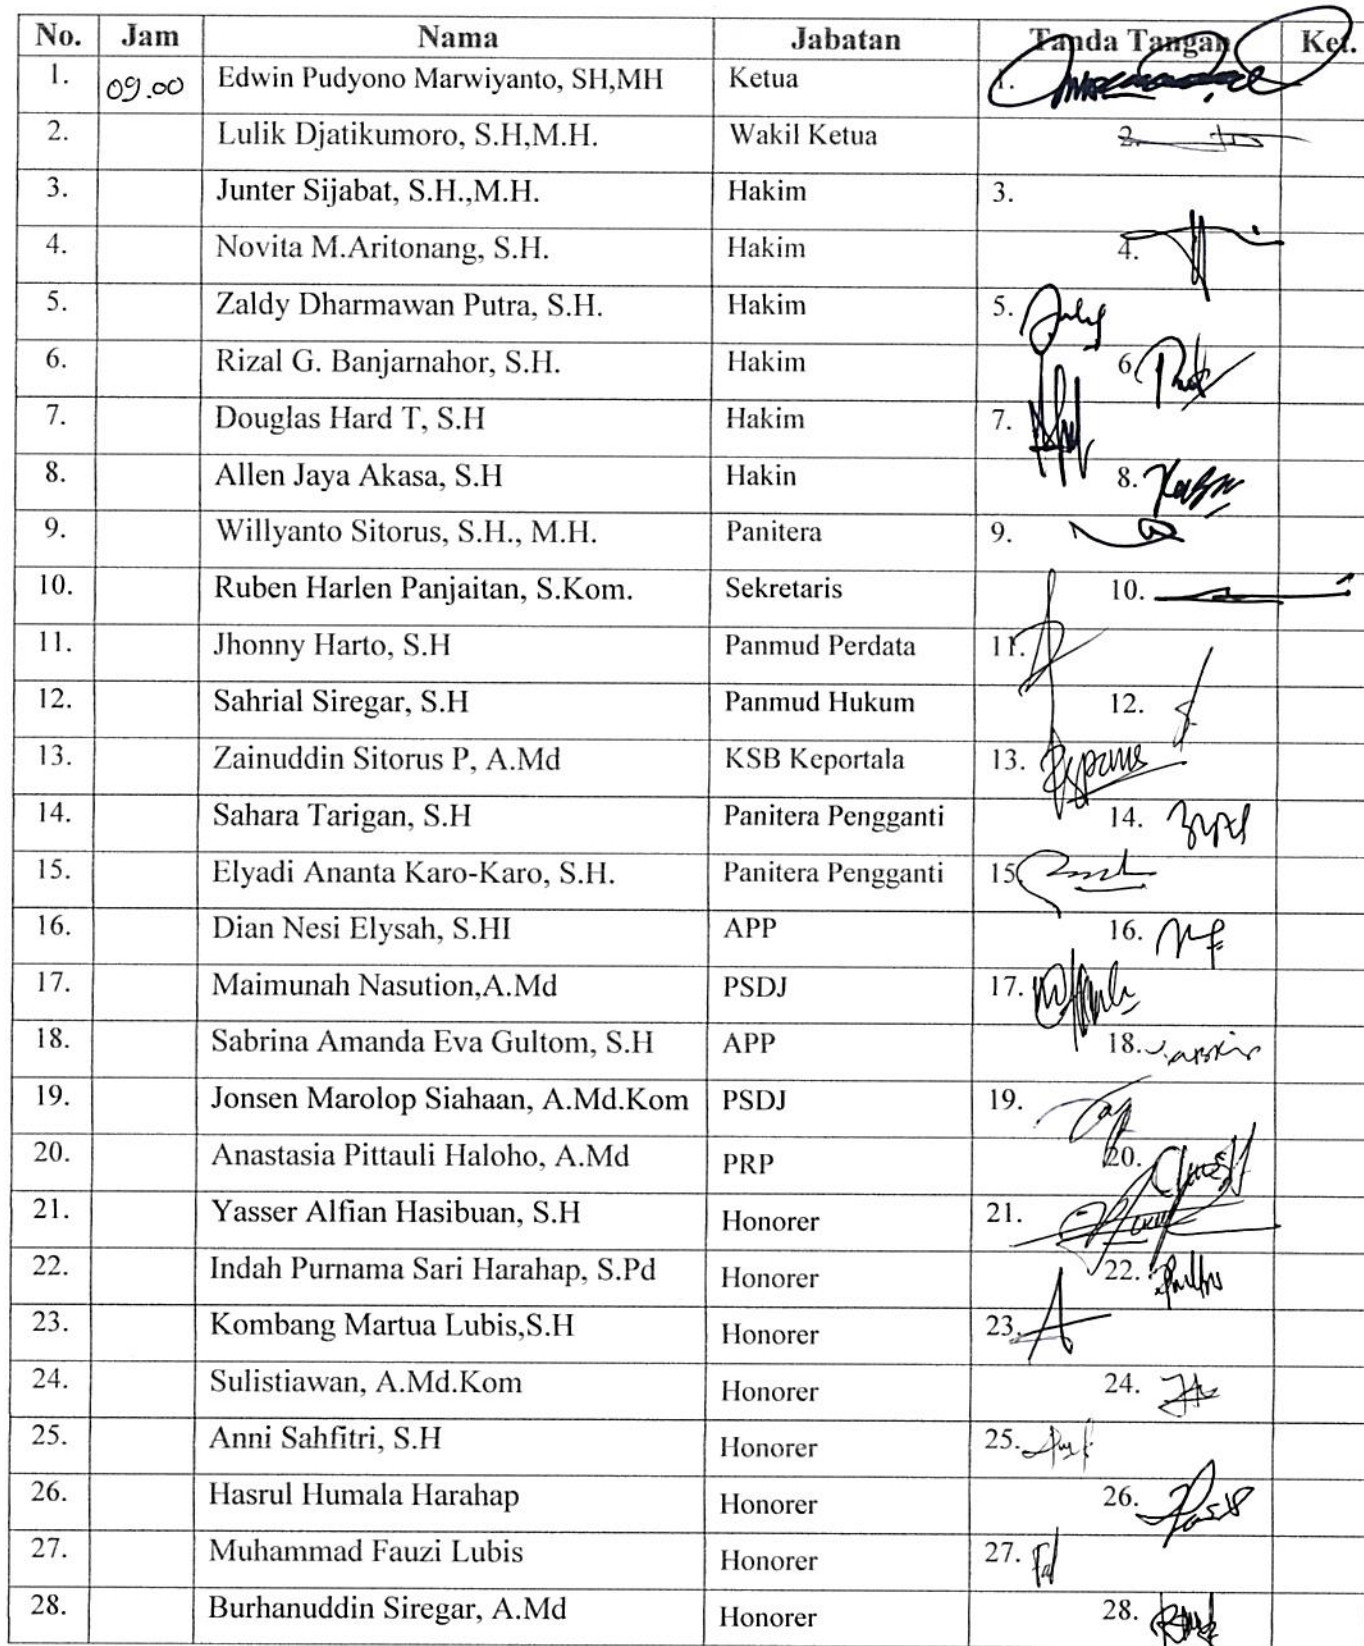 No. Jam Nama Jabatan Tanda Tangan Ket.
1. 09.00 Edwin Pudyono Marwiyanto, SH,MH Ketua 1.
2. Lulik Djatikumoro, S.H,M.H. Wakil Ketua 2.
3. Junter Sijabat, S.H.,M.H. Hakim 3.
4. Novita M.Aritonang, S.H. Hakim 4.
5. Zaldy Dharmawan Putra, S.H. Hakim 5.
6. Rizal G. Banjarnahor, S.H. Hakim 6.
7. Douglas Hard T, S.H Hakim 7.
8. Allen Jaya Akasa, S.H Hakin 8.
9. Willyanto Sitorus, S.H., M.H. Panitera 9.
10. Ruben Harlen Panjaitan, S.Kom. Sekretaris 10.
11. Jhonny Harto, S.H Panmud Perdata 11.
12. Sahrial Siregar, S.H Panmud Hukum 12.
13. Zainuddin Sitorus P, A.Md KSB Keportala 13.
14. Sahara Tarigan, S.H Panitera Pengganti 14.
15. Elyadi Ananta Karo-Karo, S.H. Panitera Pengganti 15
16. Dian Nesi Elysah, S.HI APP 16.
17. Maimunah Nasution,A.Md PSDJ 17.
18. Sabrina Amanda Eva Gultom, S.H APP 18.
19. Jonsen Marolop Siahaan, A.Md.Kom PSDJ 19.
20. Anastasia Pittauli Haloho, A.Md PRP 20.
21. Yasser Alfian Hasibuan, S.H Honorer 21.
22. Indah Purnama Sari Harahap, S.Pd Honorer 22.
23. Kombang Martua Lubis,S.H Honorer 23.
24. Sulistiawan, A.Md.Kom Honorer 24.
25. Anni Sahfitri, S.H Honorer 25.
26. Hasrul Humala Harahap Honorer 26.
27. Muhammad Fauzi Lubis Honorer 27.
28. Burhanuddin Siregar, A.Md Honorer 28.